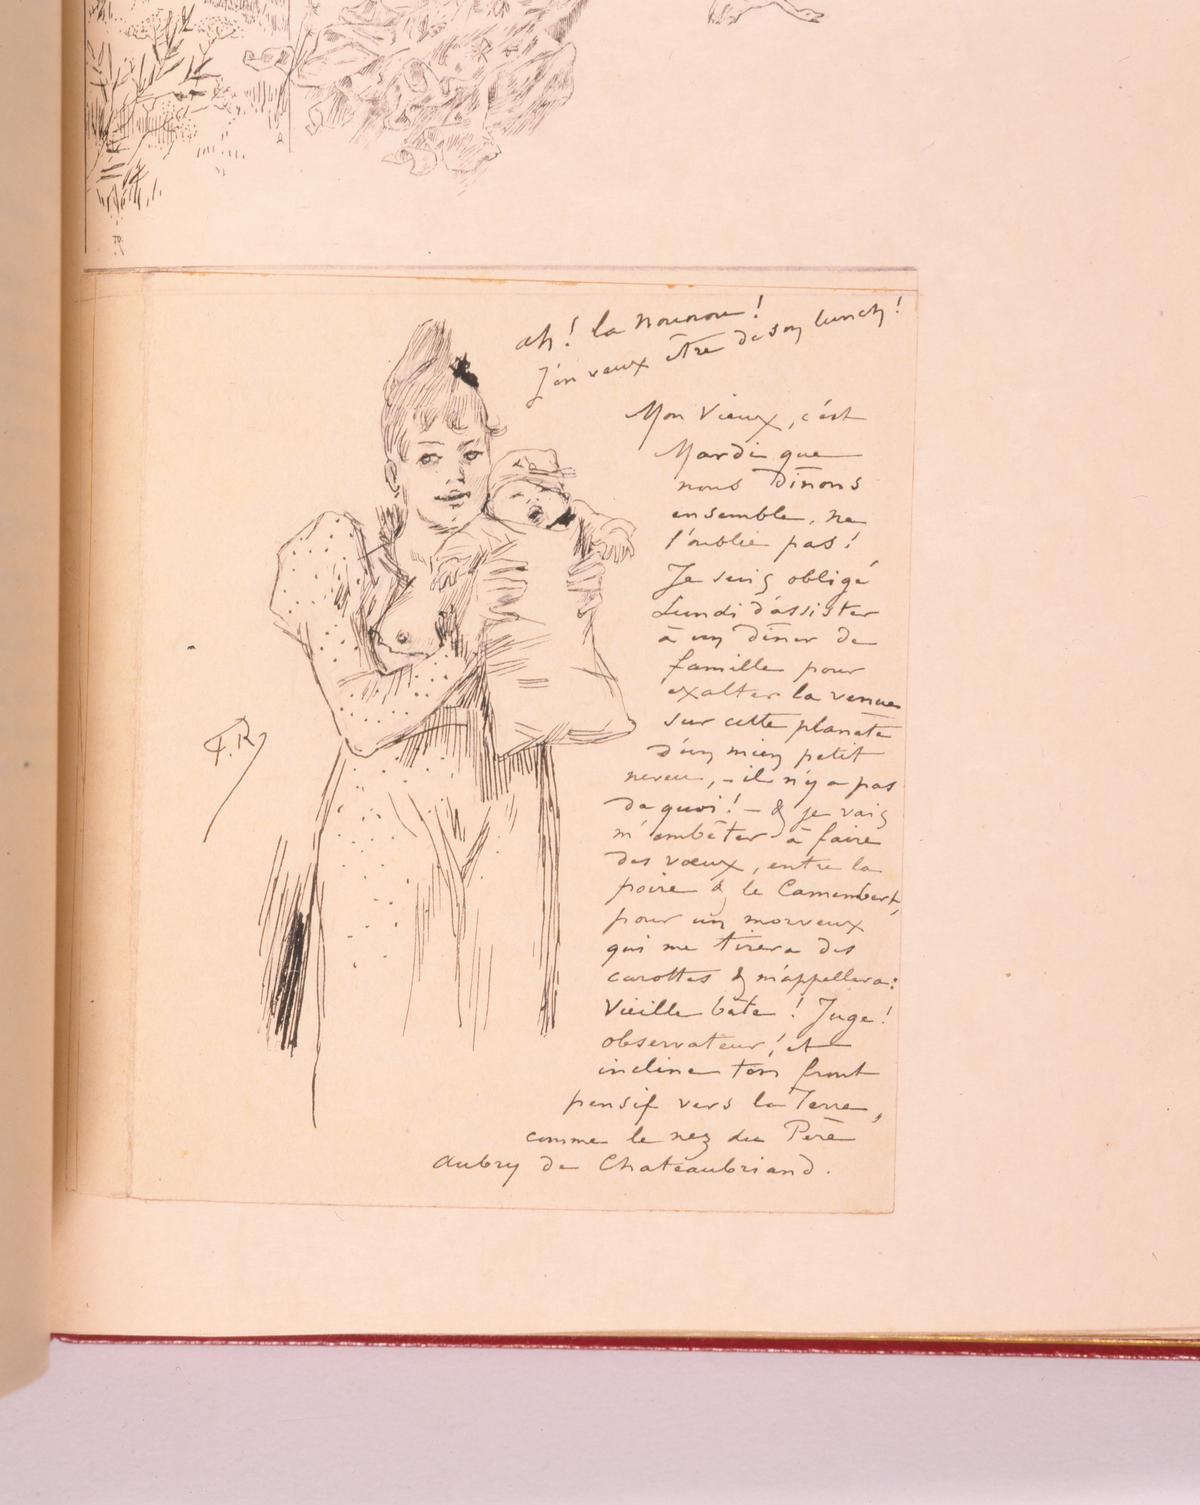 ah! la nounou!
J'en veux être de son lunch!
Mon Vieux, c'est
Mardi que
nous dinons
ensemble, ne
l'oublie pas!
Je suis obligé
Lundi d'assister
à un dîner de
famille pour
exalter la venue
sur cette planète
d'un mien petit
neveu, - il n'y a pas
de quoi! - & je vais
m'embêter à faire
des vœux, entre la
poire & le Camembert,
pour un morveux
qui me tirera des
carottes & m'appellera:
Vieille bête! Juge!
observateur! et
incline ton front
pensif vers la Terre,
comme le nez du Père
Aubry de Chateaubriand.
F.R